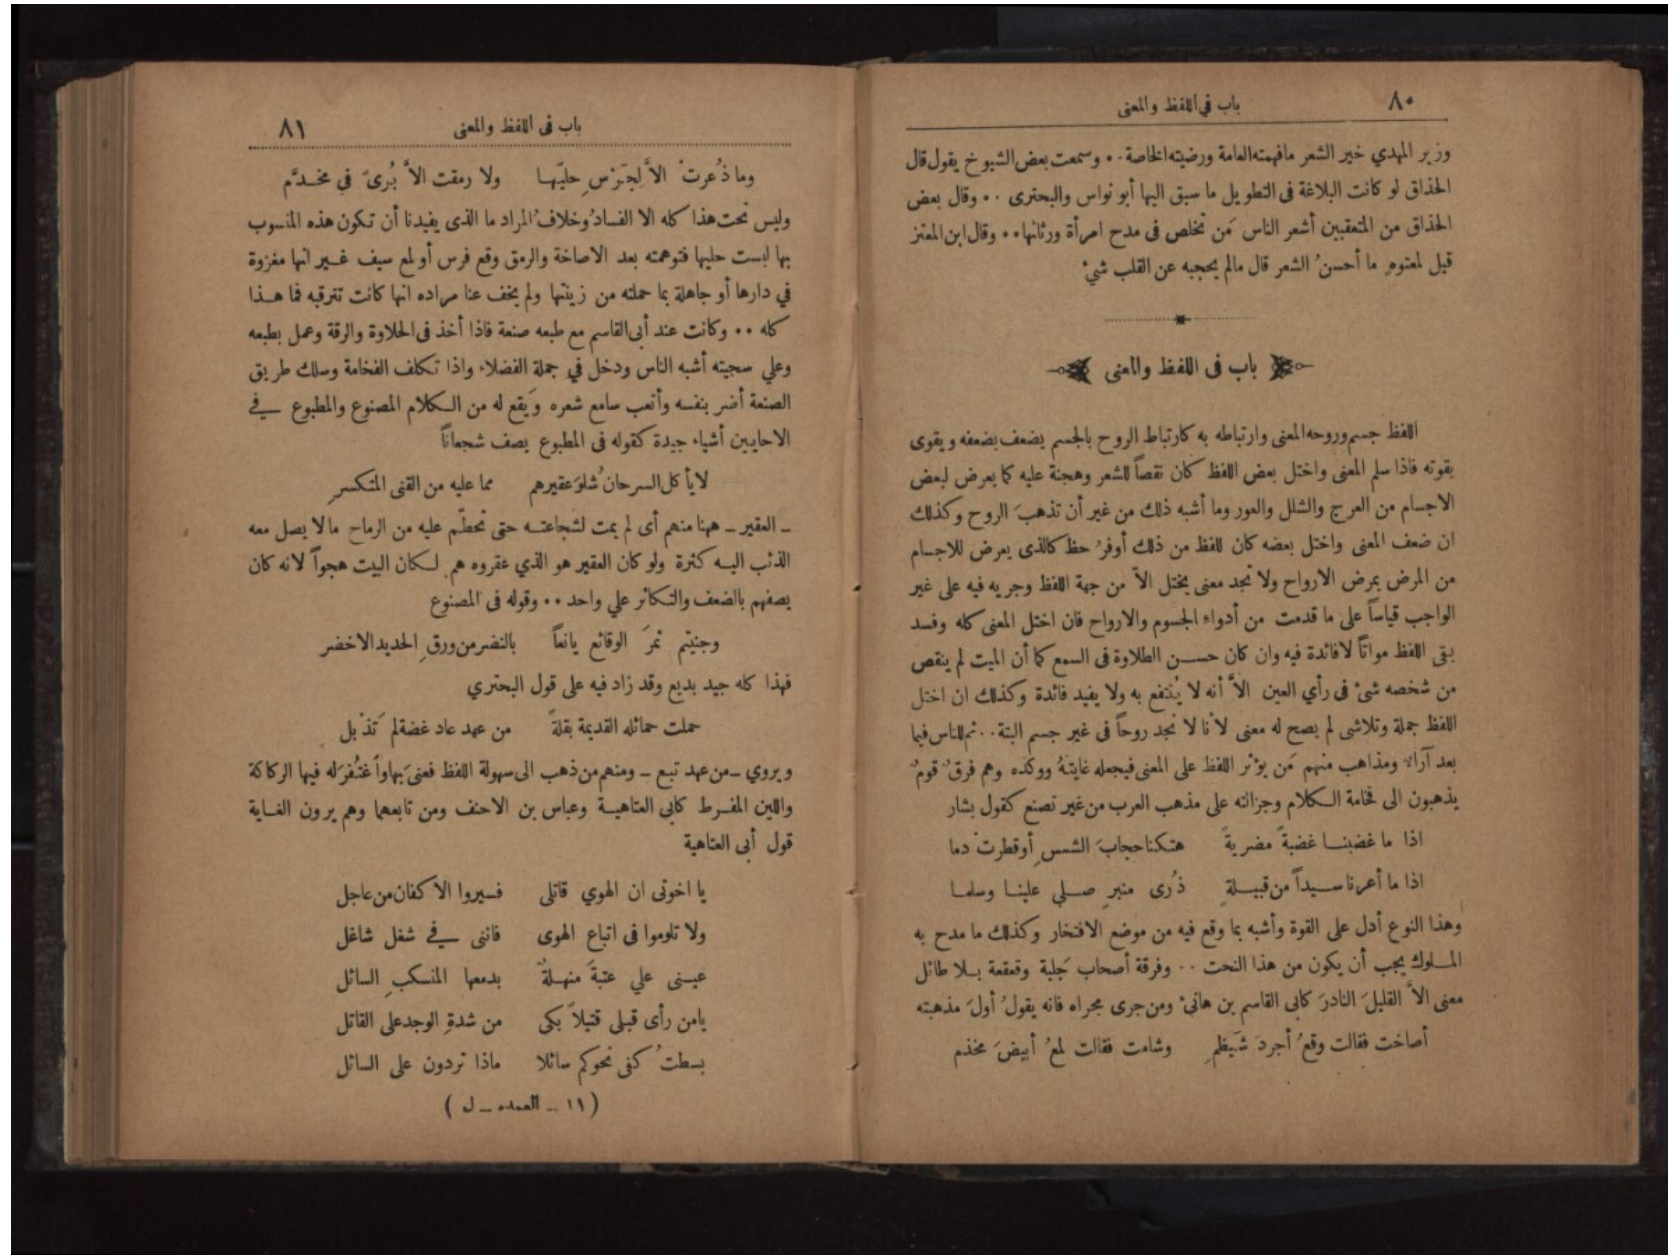 ٨٠ باب في اللفظ والمعنى
وزير المهدي خير الشعر مافهمته العامة ورضيته الخاصة ٠٠ وسمعت بعض الشيوخ يقول قال
الحذاق لو كانت البلاغة فى التطويل ما سبق اليها أبو نواس والبحترى ٠٠ وقال بعض
الحذاق من المتعقبين أشعر الناس مَن تخلص فى مدح امرأة ورثائها ٠٠ وقال ابن المعتز
قيل لمعتوهٍ ما أحسنُ الشعر قال مالم يحجبه عن القلب شيءٌ
باب فى اللفظ والمعنى
اللفظ جسم وروحه المعنى وارتباطه به كارتباط الروح بالجسم يضعف بضعفه ويقوى
بقوته فاذا سلم المعنى واختل بعض اللفظ كان نقصاً للشعر وهجنة عليه كما يعرض لبعض
الاجسام من العرج والشلل والعور وما أشبه ذلك من غير أن تذهبَ الروح وكذلك
ان ضعف المعنى واختل بعضه كان للفظ من ذلك أوفرُ حظ كالذى يعرض للاجسام
من المرض بمرض الارواح ولا تجد معنى يختل الاّ من جهة اللفظ وجريه فيه على غير
الواجب قياساً على ما قدمت من أدواء الجسوم والارواح فان اختل المعنى كله وفسد
بقى اللفظ مواتاً لافائدة فيه وان كان حسن الطلاوة فى السمع كما أن الميت لم ينقص
من شخصه شئ فى رأي العين الاَّ أنه لا يُنتفع به ولا يفيد فائدة وكذلك ان اختل
اللفظ جملة وتلاشى لم يصح له معنى لأنا لا نجد روحاً فى غير جسم البتة ٠٠ ثم للناس فيما
بعد آراءٌ ومذاهب منهم مَن يؤثر اللفظ على المعنى فيجعله غايتهُ ووكده وهم فرقٌ قومٌ
يذهبون الى فخامة الكلام وجزالته على مذهب العرب من غير تصنع كقول بشار
اذا ما غضبنا غضبةً مضريةً هتكنا حجابَ الشمسِ أوقطرتْ دما
اذا ما أعرنا سيداً من قبيلةٍ ذُرى منبرٍ صلي علينا وسلما
وهذا النوع أدل على القوة وأشبه بما وقع فيه من موضع الافتخار وكذلك ما مدح به
الملوك يجب أن يكون من هذا النحت ٠٠ وفرقة أصحاب جَلبة وقعقعة بلا طائل
معنى الاَّ القليلَ النادرَ كابى القاسم بن هانئ ومن جرى مجراه فانه يقولُ أولَ مذهبته
أصاخت فقالت وقعُ أجردَ شَيظمٍ وشامت فقالت لمعُ أبيضَ مخذم
باب فى اللفظ والمعنى ٨١
وما ذُعرتْ الاَّ لِجَرْسِ حليّها ولا رمقت الاَّ بُرىً في مخدَّم
وليس تحت هذا كله الا الفسادُ وخلافُ المراد ما الذى يفيدنا أن تكون هذه المنسوب
بها لبست حليها فتوهمته بعد الاصاخة والرمق وقع فرس أو لمع سيف غير انها مغزوة
في دارها أو جاهلة بما حملته من زينتها ولم يخف عنا مراده انها كانت تترقبه فما هذا
كله ٠٠ وكانت عند أبى القاسم مع طبعه صنعة فاذا أخذ فى الحلاوة والرقة وعمل بطبعه
وعلي سجيته أشبه الناس ودخل في جملة الفضلاء واذا تكلف الفخامة وسلك طريق
الصنعة أضر بنفسه وأتعب سامع شعره ويَقع له من الكلام المصنوع والمطبوع في
الاحايين أشياء جيدة كقوله فى المطبوع يصف شجعاناً
لايأكل السرحانُ شلوَ عقيرهم مما عليه من القنى المتكسرِ
ـ العقير ـ ههنا منهم أى لم يمت لشجاعته حتى تحطّم عليه من الرماح مالا يصل معه
الذئب اليه كثرة ولو كان العقير هو الذي عقروه هم لكان البيت هجواً لانه كان
يصفهم بالضعف والتكاثر علي واحد ٠٠ وقوله فى المصنوع
وجنيتم ثمرَ الوقائع يانعاً بالنضر من ورقِ الحديد الاخضر
فهذا كله جيد بديع وقد زاد فيه على قول البحتري
حملت حمائله القديمة بقلةً من عهد عاد غضة لم تَذْبل
ويروي ـ من عهد تبع ـ ومنهم من ذهب الى سهولة اللفظ فعنى بها واغتُفرَ له فيها الركاكة
واللين المفرط كابى العتاهية وعباس بن الاحنف ومن تابعهما وهم يرون الغاية
قول أبى العتاهية
يا اخوتى ان الهوي قاتلى فسيروا الاكفان من عاجل
ولا تلوموا فى اتباع الهوى فاننى في شغل شاغل
عينى علي عتبةَ منهلةٌ بدمعها المنسكبِ السائل
يامن رأى قبلى قتيلاً بكى من شدةِ الوجد على القاتل
بسطتُ كفى نحوكم سائلا ماذا تردون على السائل
(١١ ـ العمده ـ ل)